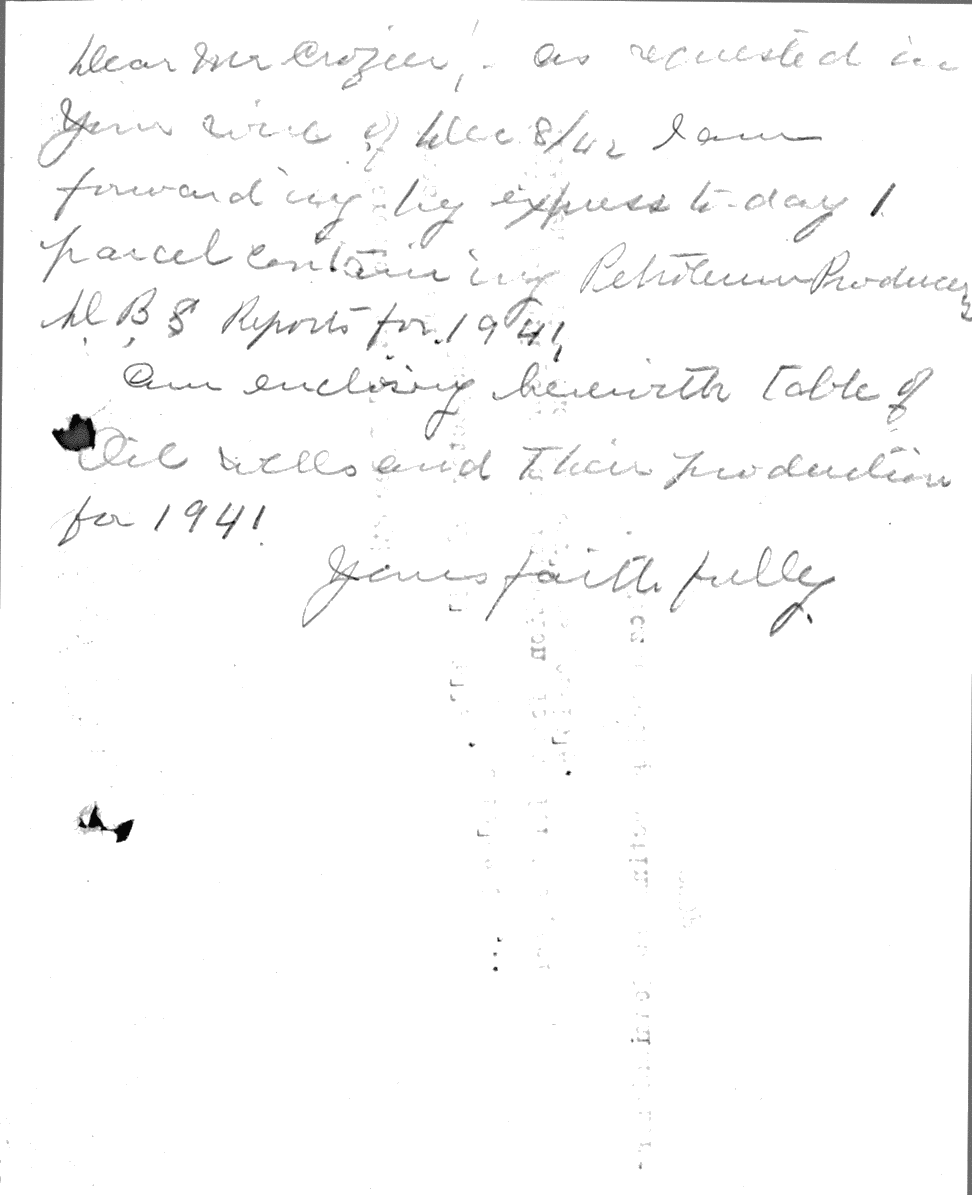 Dear Mr Crozier, - as requested in
Your wire of Dec 8/42 I am
forwarding by express to-day 1
parcel containing Petroleum Producers
D.B.S Reports for 1941,
Am enclosing herewith table of
Oil wells and their production
for 1941
Yours faithfully,